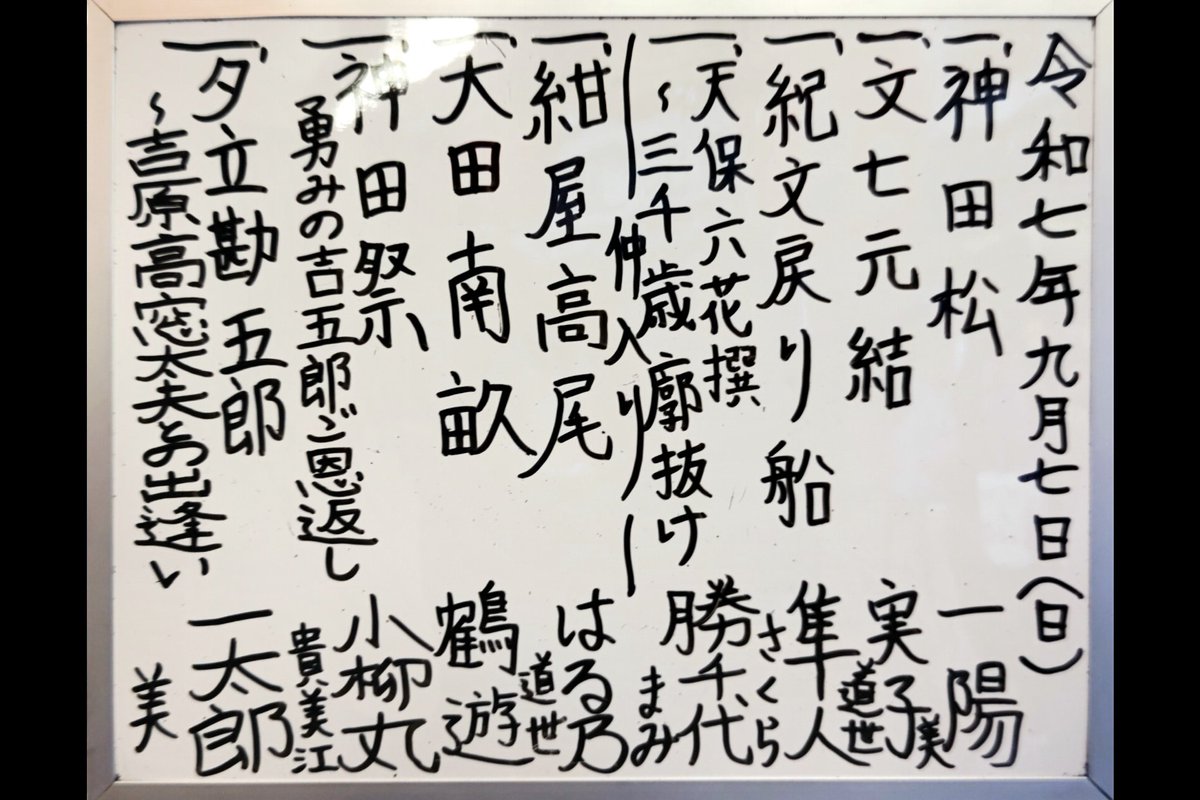 令和七年九月七日(日)
一、神田松 一陽
一、文七元結 実子 美 道世
一、紀文戻り船 隼人 さくら
一、天保六花撰 勝千代 まみ
~三千歳廓抜け
― 仲入り ―
一、紺屋高尾 はる乃 道世
一、大田南畝 鶴遊
一、神田祭 小柳丸 貴美江
勇みの吉五郎ご恩返し
一、夕立勘五郎 一太郎 美
~吉原高窓太夫との出逢い